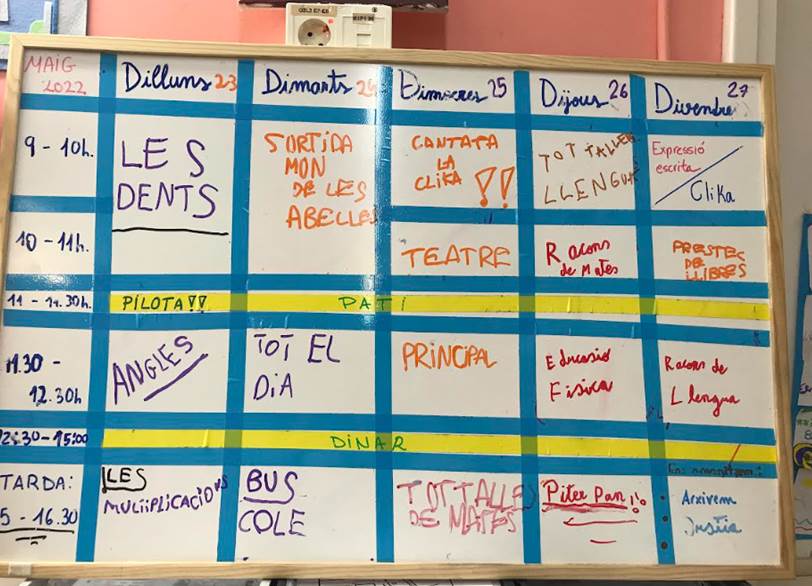 MAIG
2022
Dilluns 23
Dimarts 24
Dimecres 25
Dijous 26
Divendre 27
9 - 10h.
LES
DENTS
SORTIDA
MON
DE LES
ABELLES
CANTATA
LA
CLIKA !!
TOT TALLER
LLENGUA
Expressió
escrita
Clika
10 - 11h.
TEATRE
Racons
de Mates
PRESTEC
DE
LLIBRES
11 - 11.30h.
PILOTA!!
PATI
11.30 -
12.30h
ANGLES
TOT EL
DIA
PRINCIPAL
Educasio
Fisica
Racons de
Llengua
12:30-15:00
DINAR
TARDA:
5 - 16.30
LES
MULTIPLICACIONS
BUS
COLE
TOT TALLER
DE MATES
Piter Pan!!
Arxivem